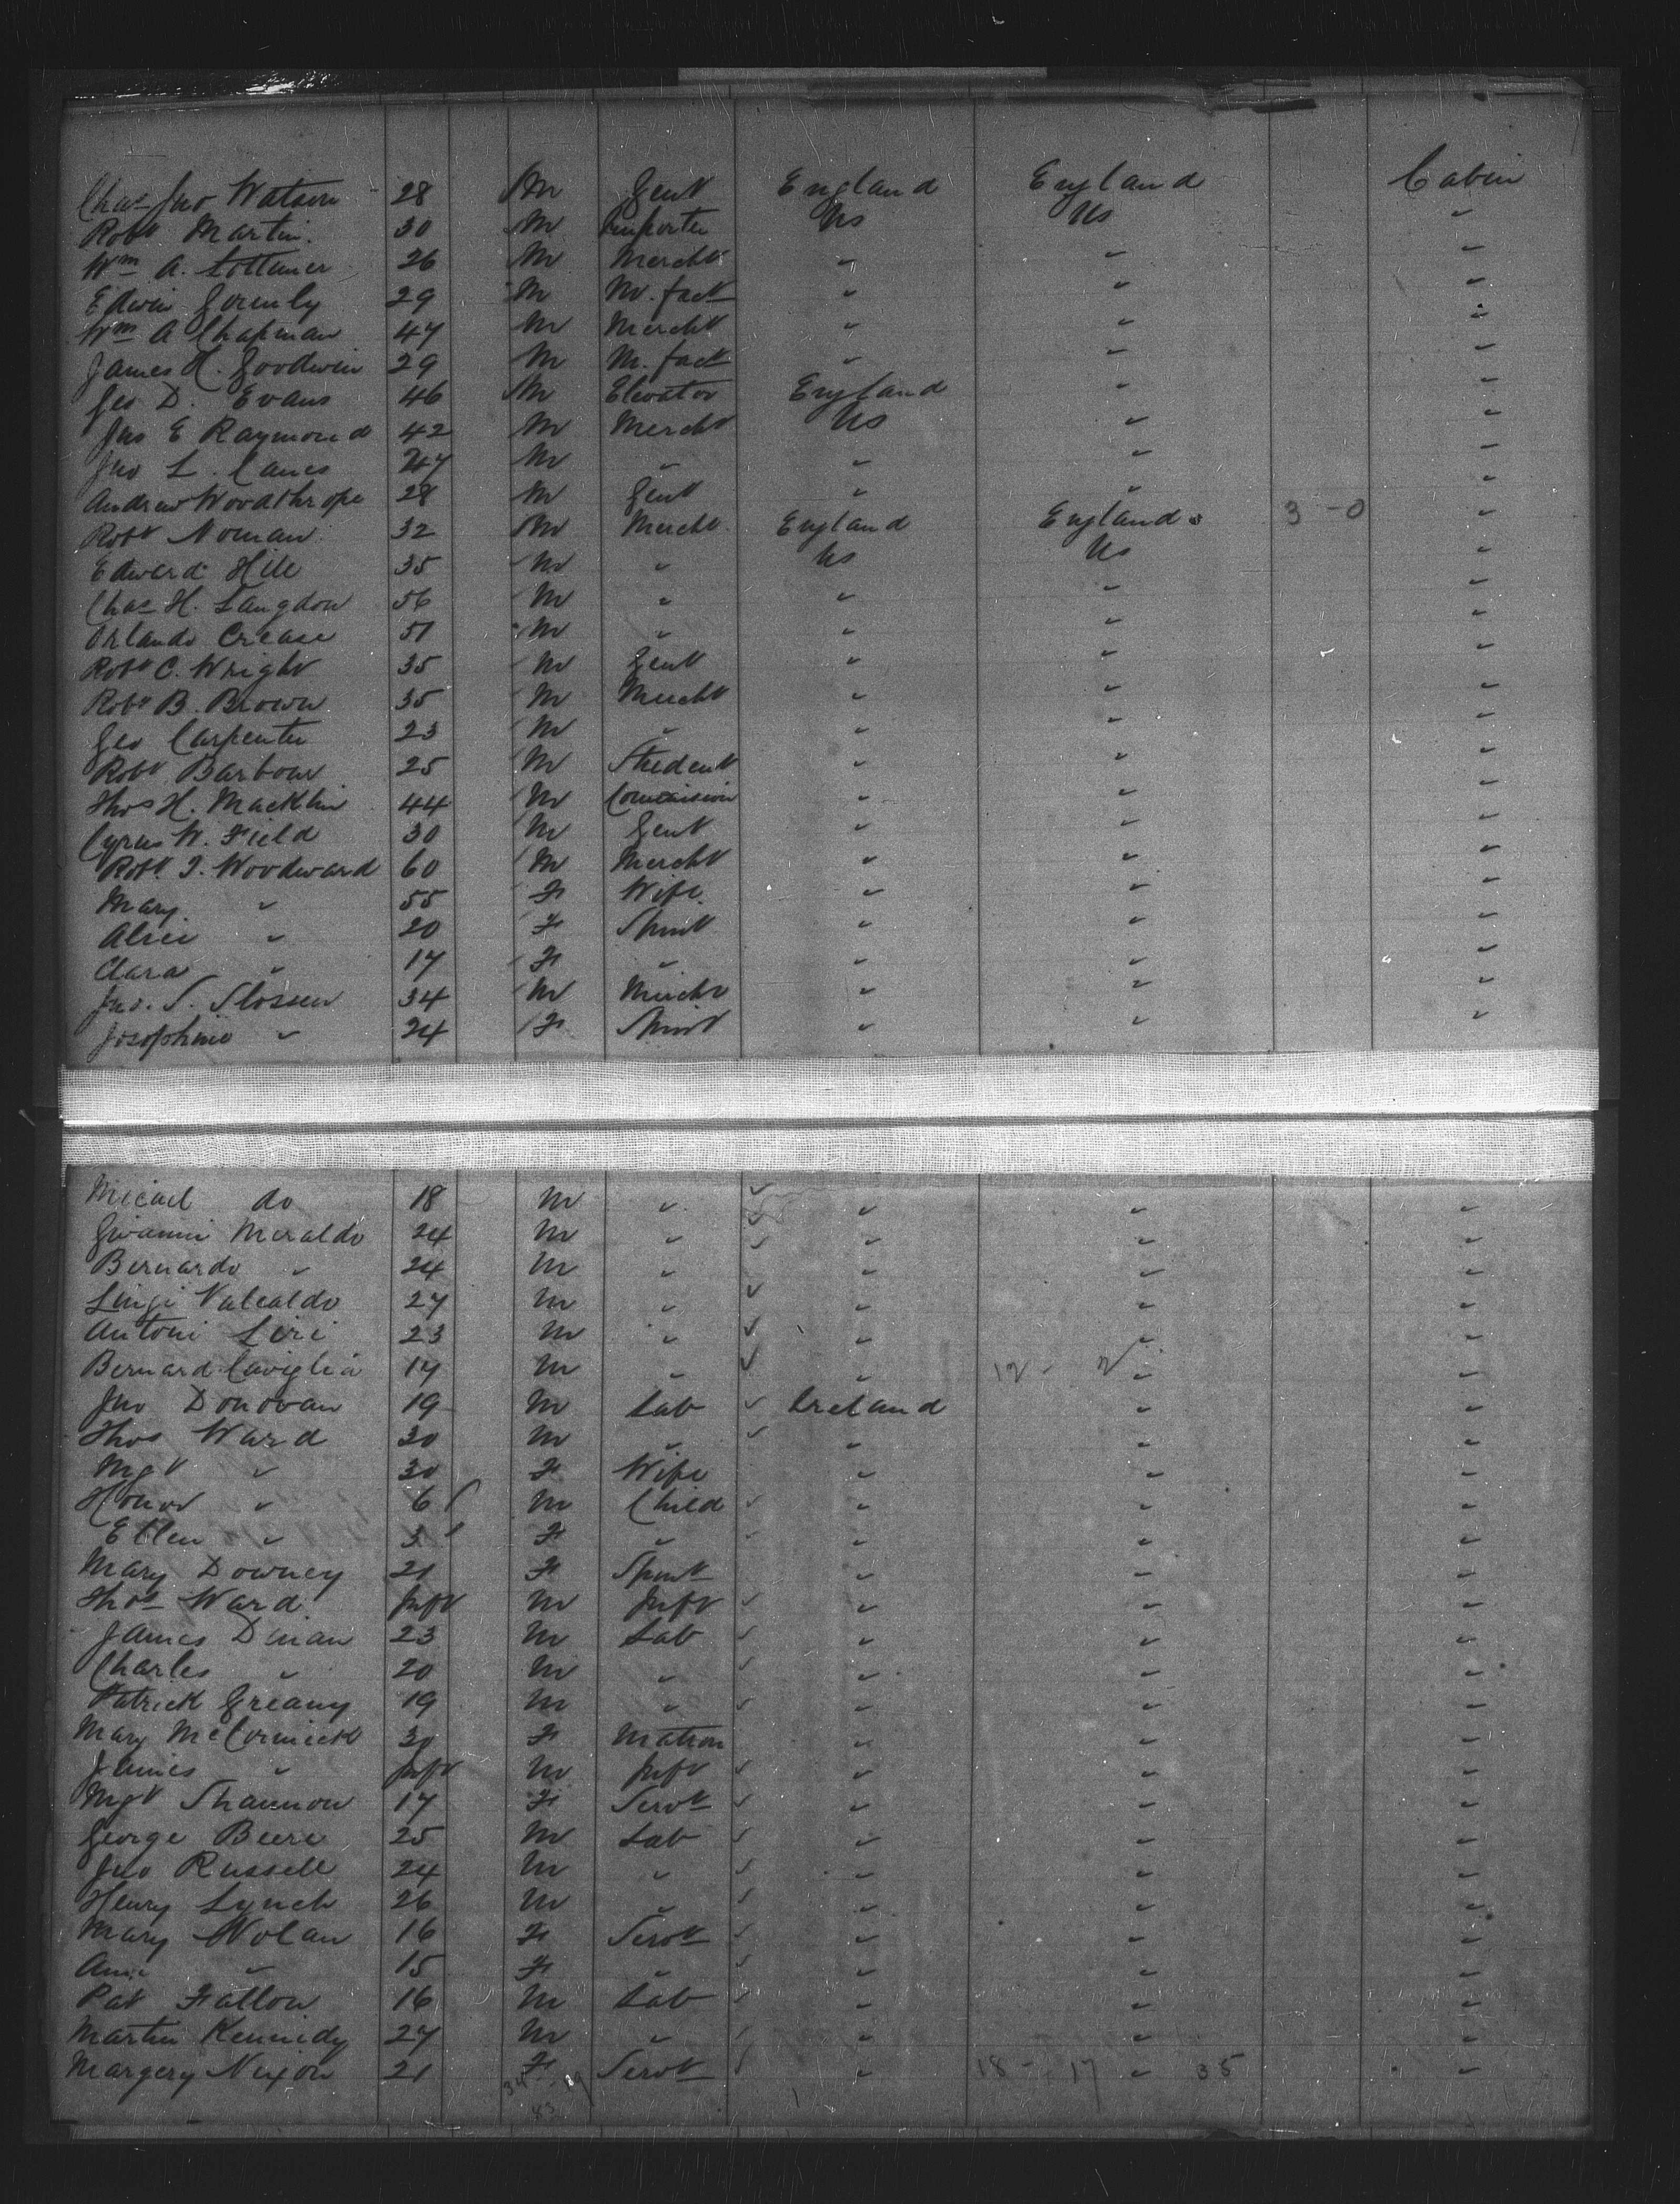 Chas Jno Watson 28 M Gent England England Cabin
Robt Martin. 30 M Importer Us Us "
Wm A. Lottimer 26 M Mercht " " "
Edwin Gormly 29 M M. fact " " "
Wm A Chapman 47 M Mercht " " "
James H. Goodwin 29 M M. fact " " "
Geo D. Evans 46 M Elevator England " "
Jno E Raymond 42 M Mercht Us " "
Jno L. 27 M " " " "
Andrew Woodthrope 28 M Gent " " "
Robt Noman 32 M Mercht England England 3 - 0 "
Edward Hile 35 M " Us Us "
Chas H. Langdon 56 M " " " "
Orlando Crease 51 M " " " "
Robt C. Wright 35 M Gent " " "
Robt B. Brown 35 M Mercht " " "
Geo Carpenter 23 M " " " "
Robt Barbour 25 M Student " " "
Thos H. Macklin 44 M Commision " " "
Cyrus W. Field 30 M Gent " " "
Robt. I. Woodward 60 M Mercht " " "
Mary " 55 F Wife " " "
Alice " 20 F Spinst " " "
Clara " 17 F " " " "
Jno. S. Slossen 34 M Mercht " " "
Josephine " 24 F Spinst " " "
Micael do 18 M " " " "
Givanni Meraldo 24 M " " " "
Bernardo " 24 M " " " "
Luigi Valcaldo 27 M " " " "
Antoni Liri 23 M " " " "
Bernard Caviglia 17 M " " 12 - " "
Jno Donovan 19 M Lab Ireland " "
Thos Ward 30 M " " " "
Mgt " 30 F Wife " " "
Honor " 6 M Child " " "
Ellen " 3 F " " " "
Mary Downey 21 F Spinst " " "
Thos Ward Inft M Inft " " "
James Dinan 23 M Lab " " "
Charles " 20 M " " " "
Patrick Greany 19 M " " " "
Mary McCormick 30 F Matron " " "
James " Inft M Inft " " "
Mgt Shannon 17 F Servt " " "
George Beere 25 M Lab " " "
Jno Russell 24 M " " " "
Henry Lynch 26 M " " " "
Mary Nolan 16 F Servt " " "
Ann " 15 F " " " "
Pat Fallon 16 M Lab " " "
Martin Kennidy 27 M " " " "
Margery Nixon 21 F Servt " 18 - 17 " 35 "